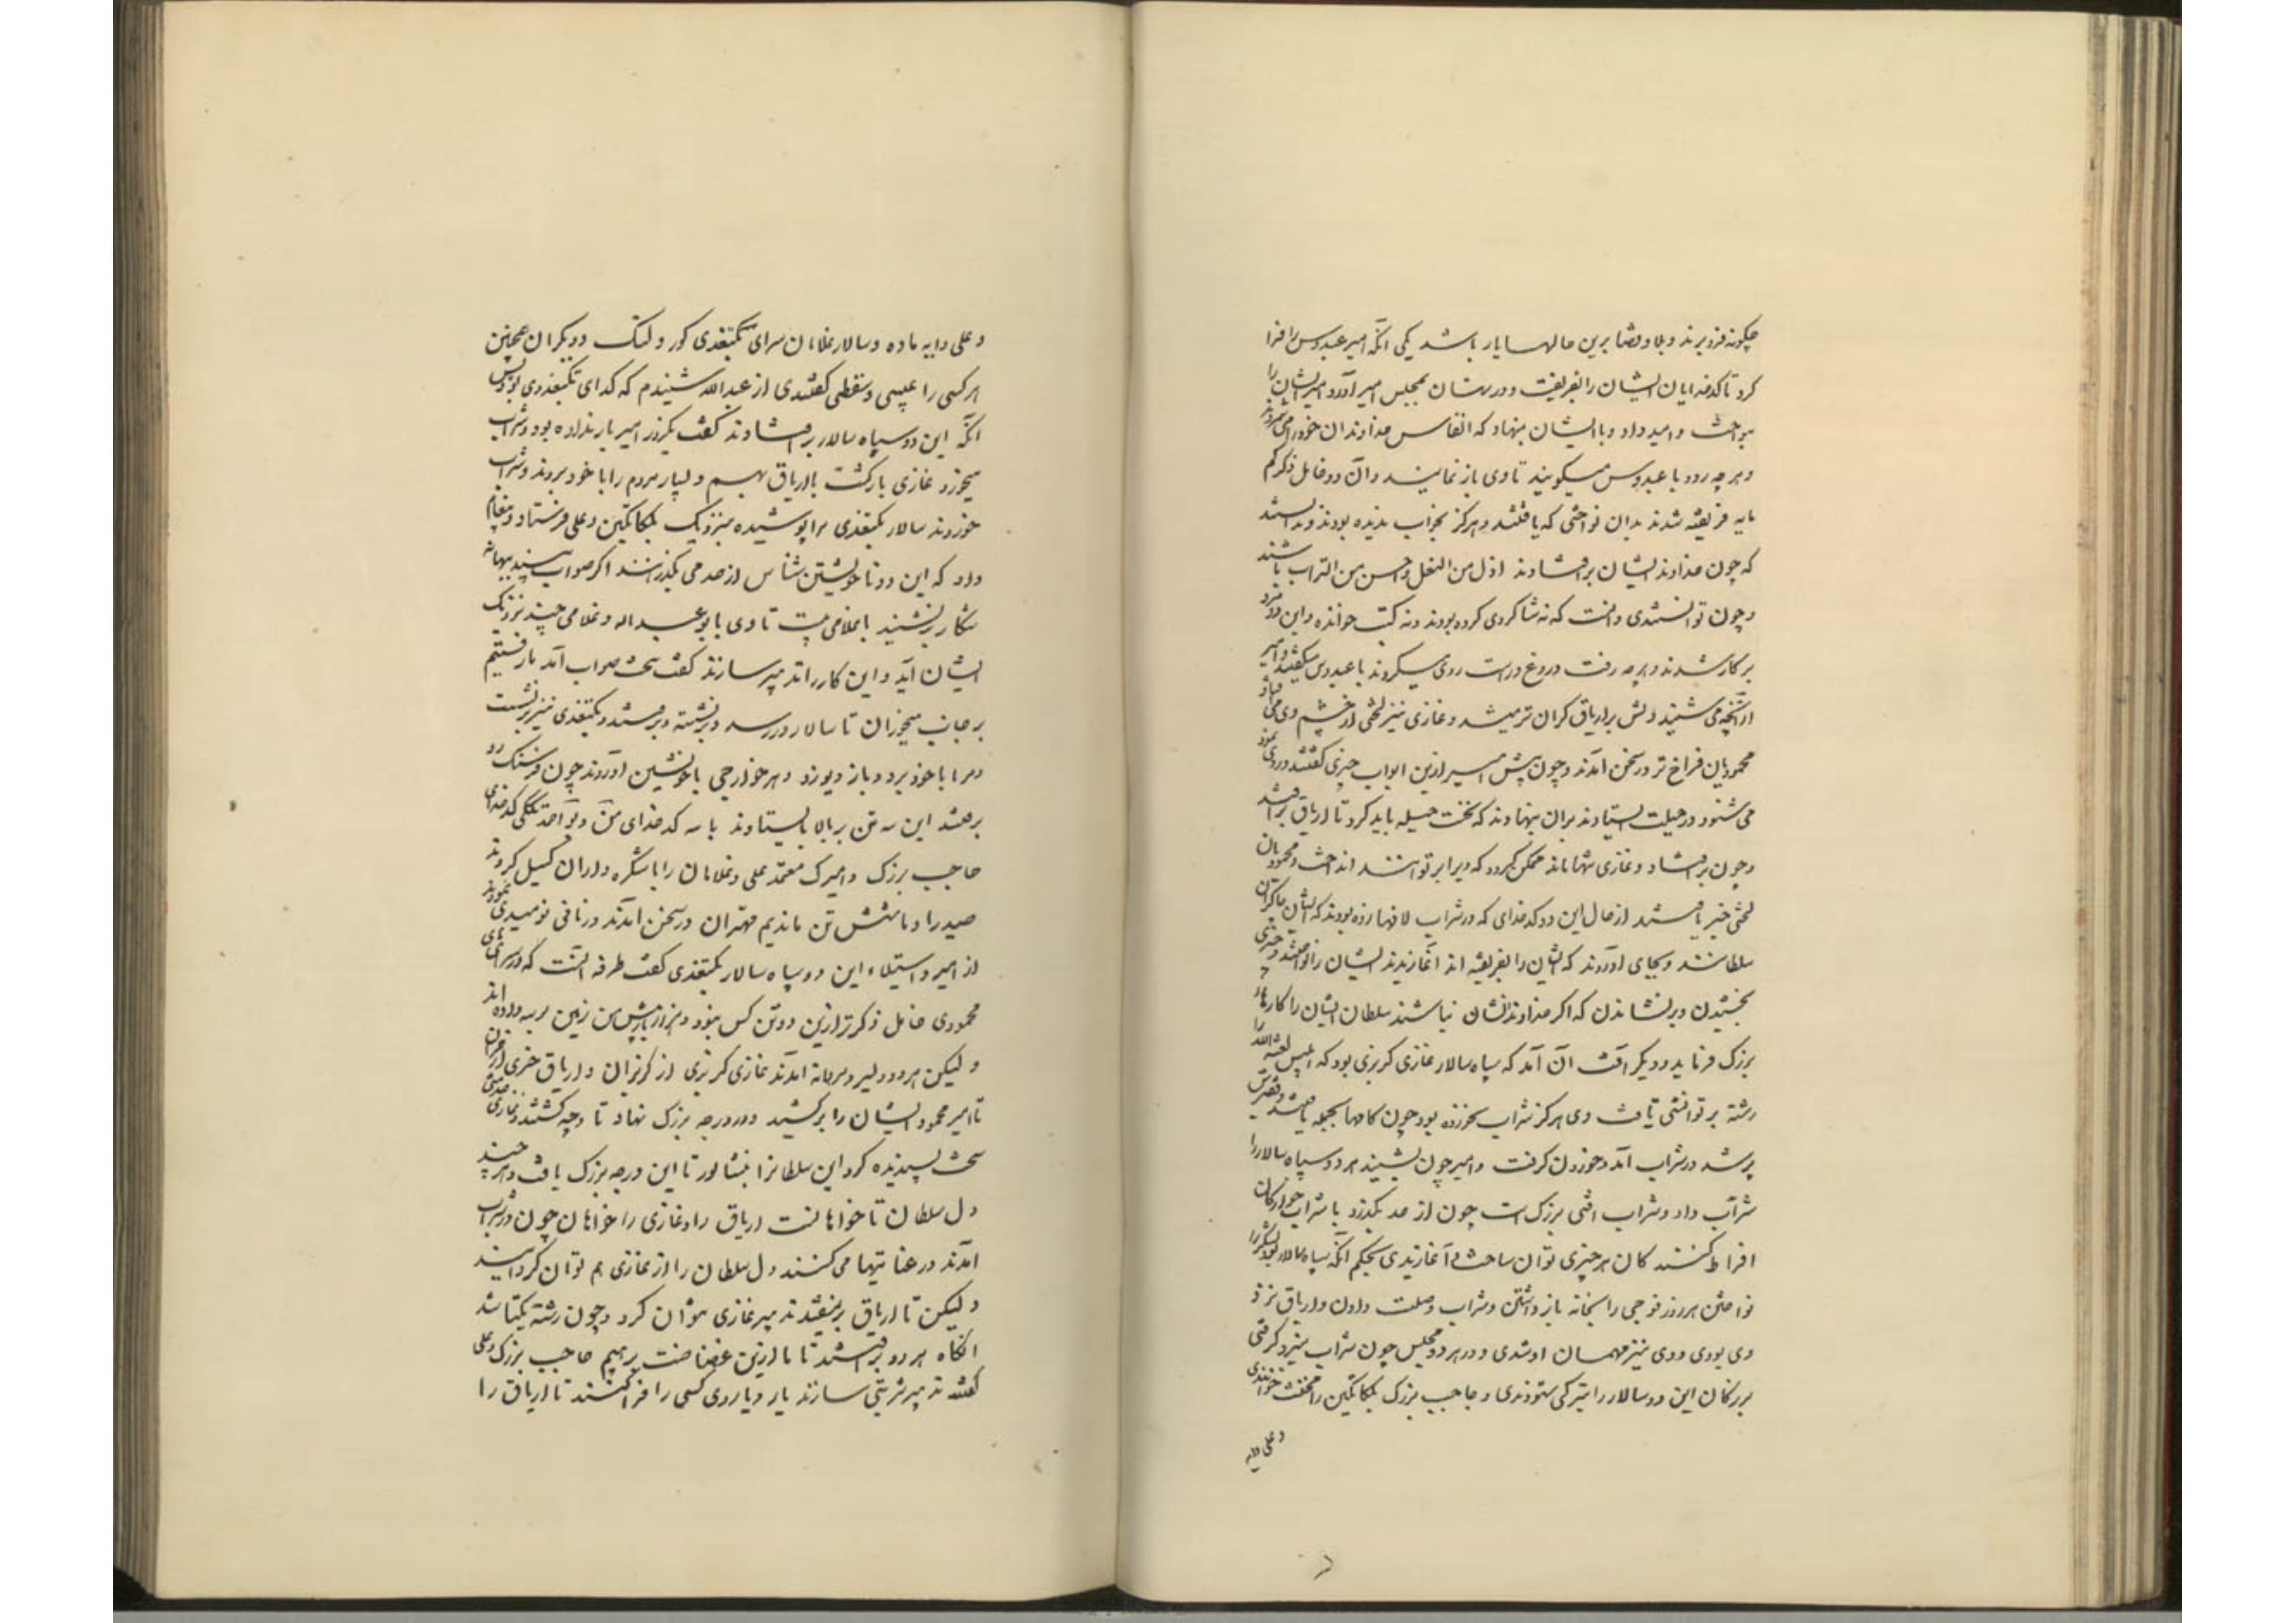 چگونه فرو برند و بلا و قضا برین حالها یار باشد یکی آنکه امیر عبدوس را فرا
کرد تا کدخدایان ایشان را بفریفت و در نهان بمجلس امیر آورد و امیر ایشان را
بنواخت و امید داد و با ایشان بنهاد که انفاس خداوندان خود را می شمرند
و هر چه رود با عبدوس میگویند تا وی باز نمایند و آن دو خامل ذکر کم
مایه فریفته شدند بدان نواختی که یافتند و هرگز بخواب ندیده بودند و ندانستند
که چون خداوند ایشان برافتادند اذل من النعل و اخس من التراب باشند
و چون توانستندی دانست که نه شاگردی کرده بودند و نه کتب خوانده و این دو مرد
بر کار شدند و هر چه رفت دروغ و راست روی میکردند با عبدوس میگفتند و امیر
از آنچه می شنید دلش بر اریاق گران تر میشد و غازی نیز لختی از چشم وی می افتاد
محمودیان فراخ تر در سخن آمدند و چون پیش امیر ازین ابواب چیزی گفتند و روی نمود
می شنود در حیلت ایستادند بران بنهادند که نخست حیله باید کرد تا اریاق برافتد
و چون برافتاد و غازی تنها ماند ممکن گردد که ویرا بر توانند انداخت و محمودیان
لختی خبر یافتند از حال این دو کدخدای که در شراب لافها زده بودند که ایشان چاکران
سلطانند و بجای آوردند که ایشان را بفریفته اند آغازیدند ایشان را نواختند و چیزی
بخشیدن و برنشاندن که اگر خداوندشان نباشند سلطان ایشان را کارهای
بزرگ فرماید و دیگر آفت آن آمد که سپاه سالار غازی گربزی بود که ابلیس لعنه الله را
رشته بر توانستی تافت وی هرگز شراب نخورده بود چون کامها بجمله یافت و قفیزش
پر شد در شراب آمد و خوردن گرفت و امیر چون بشنید هر دو سپاه سالار را
شراب داد و شراب آفتی بزرگ است چون از حد بگذرد با شراب خوارگان
افراط کنند کان هر چیزی توان ساخت آغازیدی بحکم آنکه سپاه سالار بود لشکر را
نواختن هر روز فوجی را بخانه باز داشتن و شراب و صلت دادن و اریاق نزد
وی بودی و وی نیز مهمان او شدی و در هر دو مجلس چون شراب نیرو گرفتی
بزرگان این دو سالار را بترکی ستودندی و حاجب بزرگ بلکاتکین را مخنث خواندندی
و علی دایه
و علی دایه ماده و سالار غلامان سرای بگتغدی کور و لنگ و دیگران همچنین
هر کسی را عیبی و سقطی گفتندی از عبدالله شنیدم که کدخدای بگتغدی بود پس
آنکه این دو سپاه سالار برافتادند گفت یکروز امیر بار نداده بود و شراب
میخورد غازی بازگشت با اریاق بهم و بسیار مردم را با خود بردند و شراب
خوردند سالار بگتغدی مرا پوشیده بنزدیک بلکاتکین و علی فرستاد و پیغام
داد که این دو ناخویشتن شناس از حد می بگذرانند اگر صواب بینند ببهانه
شکار برنشینند با غلامی بیست تا وی با بوعبداله و غلامی چند نزدیک
ایشان آید و این کار را تدبیر سازند گفت سخت صواب آمد ما رفتیم
بر جانب میخواران تا سالار در رسد و برنشسته و برفتند و بگتغدی نیز برنشست
و مرا با خود برد و باز و یوز و هر جوارحی با خویشتن آوردند چون فرسنگ دو
برفتند این سه تن بر بالا بایستادند با سه کدخدای من و بو احمد تکلی کدخدای
حاجب بزرگ و امیرک معتمد علی و غلامان را با شکره داران گسیل کردند
صید را و ما شش تن ماندیم مهتران در سخن آمدند و زمانی نومیدی نمودند
از امیر و استیلاء این دو سپاه سالار بگتغدی گفت طرفه آنست که در سرای های
محمودی خامل ذکرتر ازین دو تن کس نبود و هزار بار پیش من زمین بوسه داده اند
و لیکن هر دو دلیر و مردانه آمدند غازی گربزی از گربزان و اریاق خری از خران
تا امیر محمود ایشان را برکشید و در درجه بزرگ نهاد تا وجه گشتند و غازی خدمتی
سخت پسندیده کرد این سلطانرا بنشابور تا این درجه بزرگ یافت و هر چند
دل سلطان ناخواهانست اریاق را و غازی را خواهان چون در شراب
آمدند و رعنایها می کنند دل سلطان را از غازی هم توان گردانید
و لیکن تا اریاق برنیفتد تدبیر غازی نتوان کرد و چون رشته یکتا شد
آنگاه هر دو برافتند تا ما ازین غضاضت برهیم حاجب بزرگ و علی
گفتند تدبیر شربتی سازند یا رویاروی کسی را فرا کنند تا اریاق را